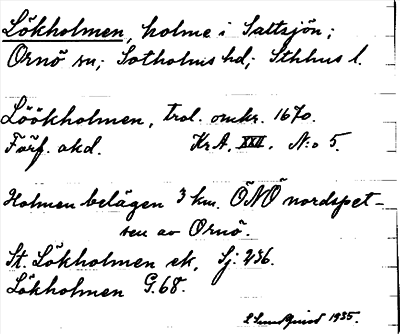 Lökholmen, holme i Saltsjön;
Ornö sn; Sotholms hd; Sthlms l.
Löökholmen, trol. omkr. 1670.
Förf. okd. Kr A. XXII. N:o 5.
Holmen belägen 3 km. ÖNÖ nordspet-
sen av Ornö.
St. Lökholmen ek, Sj. 236.
Lökholmen G. 68.
Lundquist 1935.